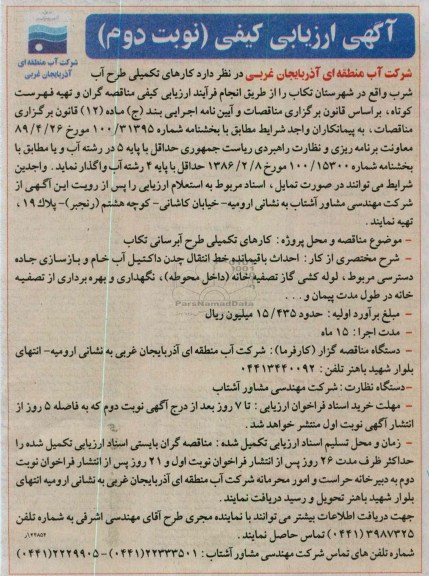 آگهی ارزیابی کیفی (نوبت دوم)
شرکت آب منطقه ای
آذربایجان غربی
شرکت آب منطقه ای آذربایجان غربـی در نظر دارد کارهای تکمیلی طرح آب
شرب واقع در شهرستان تکاب را از طریق انجام فرآیند ارزیابی کیفی مناقصه گران و تهیه فهرست
کوتاه، براساس قانون برگزاری مناقصات و آیین نامه اجرایی بند (ج) ماده (۱۲) قانون برگزاری
مناقصات، به پیمانکاران واجد شرایط مطابق با بخشنامه شماره ۱۰۰/۳۱۳۹۵ مورخ ۸۹/۴/۲۶
معاونت برنامه ریزی و نظارت راهبردی ریاست جمهوری حداقل با پایه ۵ در رشته آب و یا مطابق با
بخشنامه شماره ۱۰۰/۱۵۳۰۰ مورخ ۱۳۸۶/۲/۸ حداقل با پایه ۴ رشته آب واگذار نماید. واجدین
شرایط می توانند در صورت تمایل، اسناد مربوط به استعلام ارزیابی را پس از رویت این آگهی از
شرکت مهندسی مشاور آشتاب به نشانی ارومیه- خیابان کاشانی- کوچه هشتم (رنجبر)- پلاک ۱۹،
تهیه نمایند.
- موضوع مناقصه و محل پروژه: کارهای تکمیلی طرح آبرسانی تکاب
- شرح مختصری از کار: احداث باقیمانده خط انتقال چدن داکتیل آب خام و بازسازی جاده
دسترسی مربوط، لوله کشی گاز تصفیه خانه (داخل محوطه)، نگهداری و بهره برداری از تصفیه
خانه در طول مدت پیمان و ...
- مبلغ برآورد اولیه: حدود ۱۵/۴۳۵ میلیون ریال
- مدت اجرا: ۱۵ ماه
- دستگاه مناقصه گزار (کارفرما): شرکت آب منطقه ای آذربایجان غربی به نشانی ارومیه- انتهای
بلوار شهید باهنر تلفن: ۰۴۴۱۳۴۴۰۰۹۲
- دستگاه نظارت: شرکت مهندسی مشاور آشتاب
- مهلت خرید اسناد فراخوان ارزیابی: تا ۷ روز بعد از درج آگهی نوبت دوم که به فاصله ۵ روز از
انتشار آگهی نوبت اول منتشر خواهد شد.
- زمان و محل تسلیم اسناد ارزیابی تکمیل شده: مناقصه گران بایستی اسناد ارزیابی تکمیل شده را
حداکثر ظرف مدت ۲۶ روز پس از انتشار فراخوان نوبت اول و ۲۱ روز پس از انتشار فراخوان نوبت
دوم به دبیر خانه حراست و امور محرمانه شرکت آب منطقه ای آذربایجان غربی به نشانی ارومیه انتهای
بلوار شهید باهنر تحویل و رسید دریافت نمایند.
جهت دریافت اطلاعات بیشتر می توانند با نماینده مجری طرح آقای مهندسی اشرفی به شماره تلفن
۳۹۸۷۳۲۵ (۰۴۴۱) تماس حاصل نمایند.
شماره تلفن های تماس شرکت مهندسی مشاور آشتاب: ۲۲۳۳۵۰۱(۰۴۴۱)-۲۲۲۹۹۰۵(۰۴۴۱)
ParsNamadData